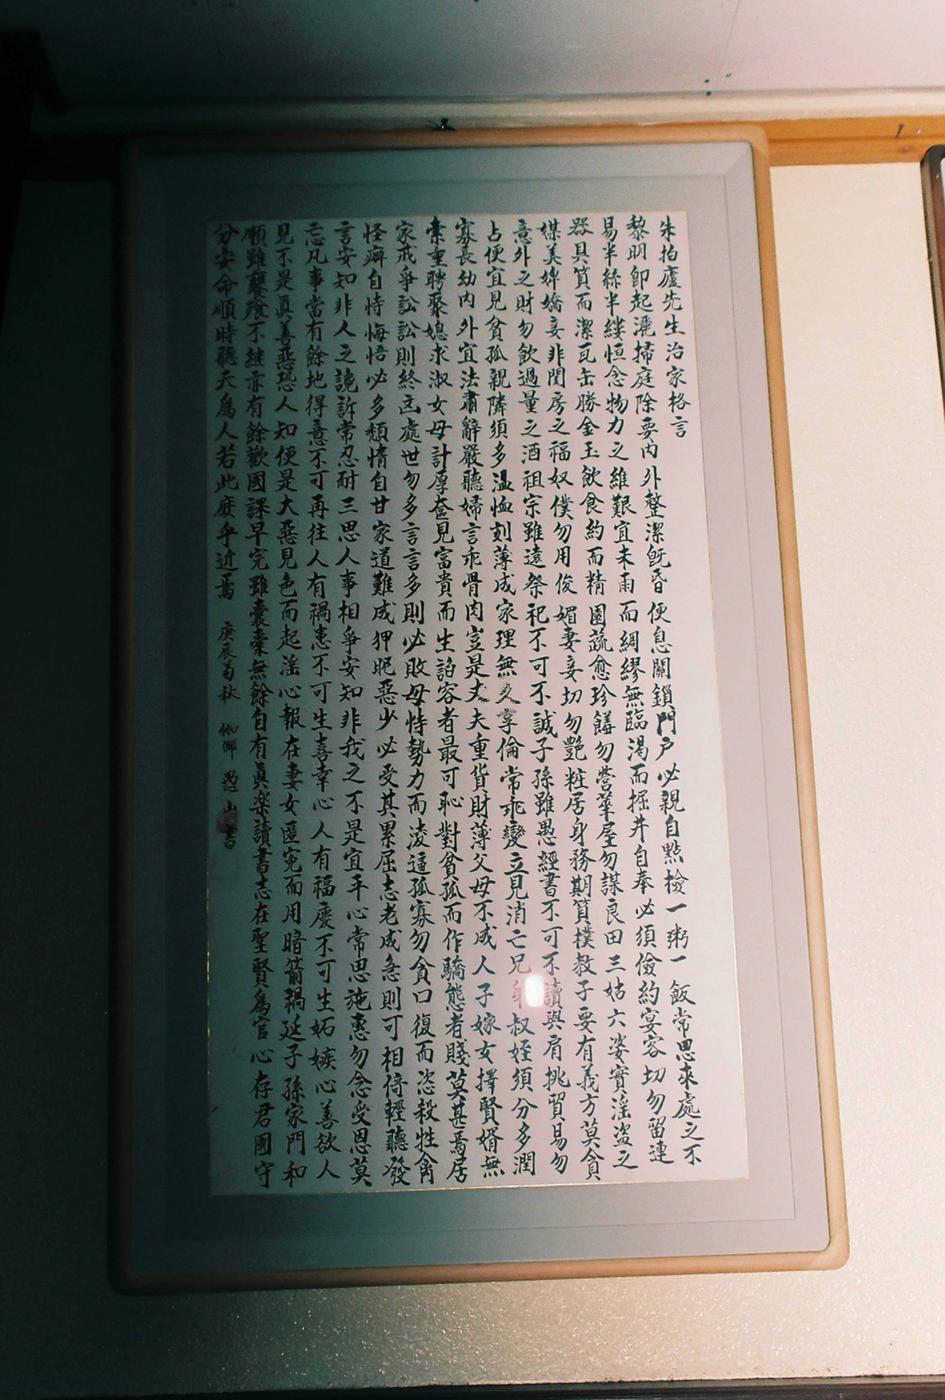 朱柏廬先生治家格言
黎明卽起灑掃庭除要內外整潔旣昏便息關鎖門戶必親自點檢一粥一飯常思來處之不
易半絲半縷恒念物力之維艱宜未雨而綢繆無臨渴而掘井自奉必須儉約宴客切勿留連
器具質而潔瓦缶勝金玉飲食約而精園蔬愈珍饈勿營華屋勿謀良田三姑六婆實淫盜之
媒美婢嬌妾非閨房之福奴僕勿用俊媚妻妾切勿艷粧居身務期質樸教子要有義方莫貪
意外之財勿飲過量之酒祖宗雖遠祭祀不可不誠子孫雖愚經書不可不讀與肩挑貿易勿
占便宜見貧孤親隣須多温恤刻薄成家理無久享倫常乖變立見消亡兄弟叔姪須分多潤
寡長幼內外宜法肅辭嚴聽婦言乖骨肉豈是丈夫重貨財薄父母不成人子嫁女擇賢婿無
索重聘聚媳求淑女毋計厚奩見富貴而生諂容者最可恥對貧孤而作驕態者賤莫甚焉居
家戒爭訟訟則終凶處世勿多言言多則必敗毋恃勢力而淩逼孤寡勿貪口復而恣殺牲禽
怪癖自恃悔悟必多頹情自甘家道難成狎昵惡少必受其累屈志老成急則可相倚輕聽發
言安知非人之譖訴常忍耐三思人事相爭安知非我之不是宜平心常思施惠勿念受恩莫
忘凡事當有餘地得意不可再往人有禍患不可生喜幸心人有福慶不可生妬嫉心善欲人
見不是眞善惡恐人知便是大惡見色而起淫心報在妻女匿寃而用暗箭禍延子孫家門和
順雖饔飧不繼亦有餘歡國課早完雖囊橐無餘自有眞樂讀書志在聖賢爲官心存君國守
分安命順時聽天爲人若此庶乎近焉 庚辰菊秋 山書